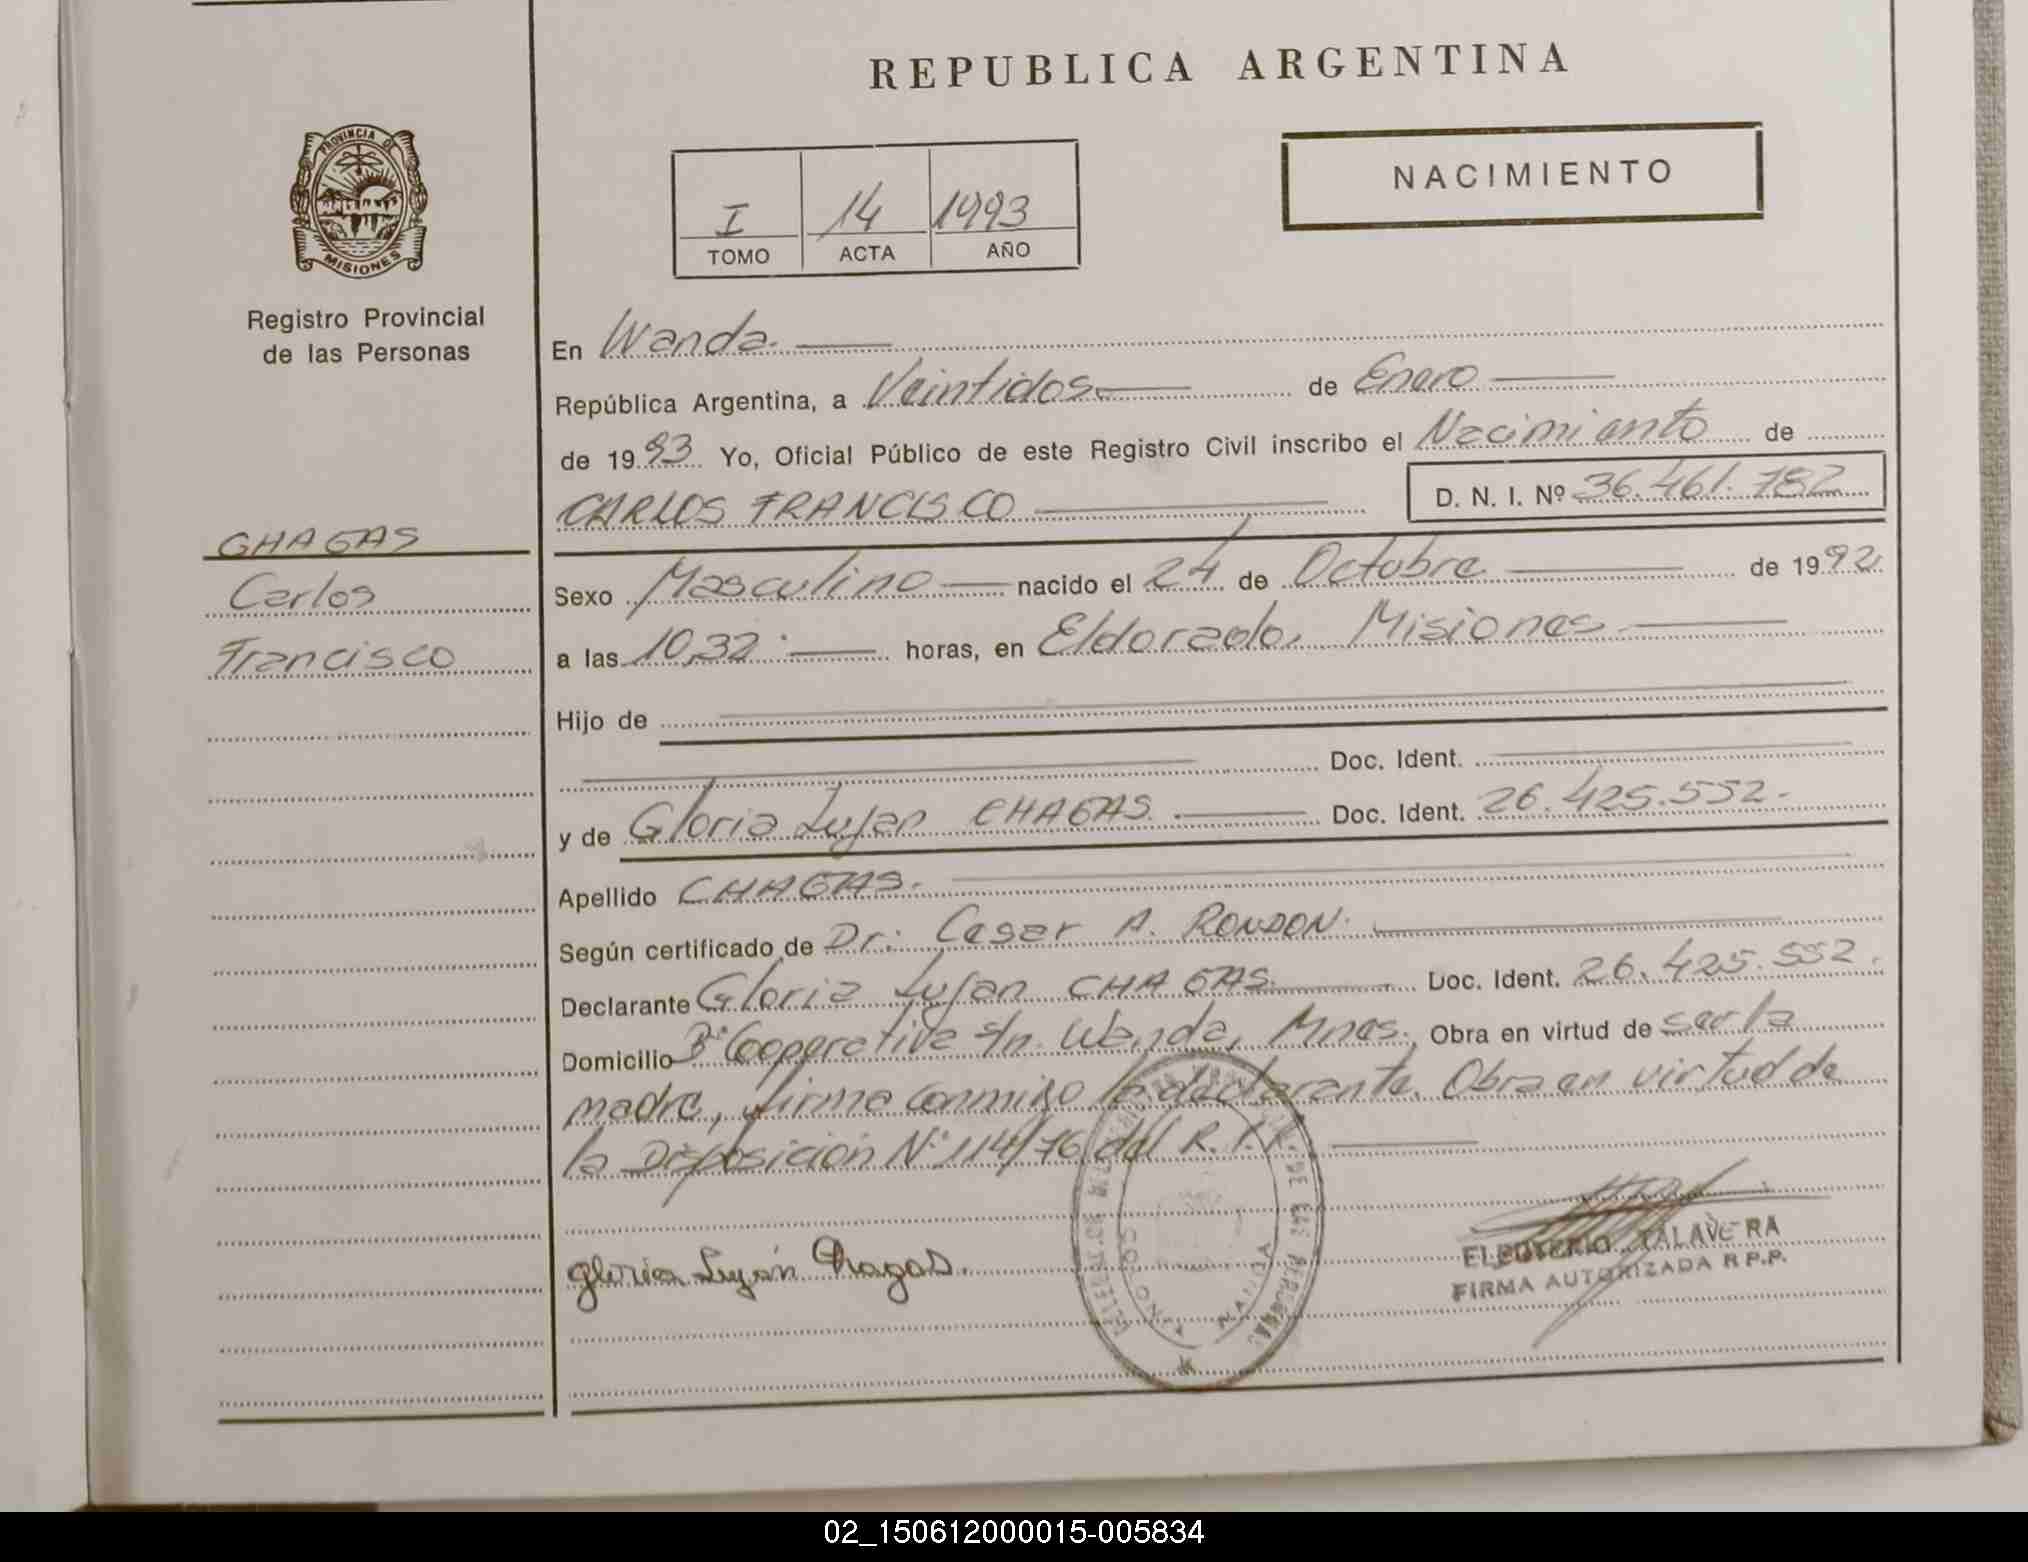 REPUBLICA ARGENTINA
PROVINCIA DE
MISIONES
Registro Provincial
de las Personas
I 14 1993
TOMO ACTA AÑO
NACIMIENTO
En Wanda.
República Argentina, a Veintidos de Enero
de 1993 Yo, Oficial Público de este Registro Civil inscribo el Nacimiento de
CARLOS FRANCISCO D. N. I. Nº 36.461.782
CHAGAS
Carlos
Francisco
Sexo Masculino nacido el 24 de Octubre de 1992
a las 10,32 horas, en Eldorado, Misiones
Hijo de
Doc. Ident.
y de Gloria Lujan CHAGAS Doc. Ident. 26.425.552.
Apellido CHAGAS.
Según certificado de Dr: Cesar A. RONDON.
Declarante Gloria Lujan CHAGAS Doc. Ident. 26.425.552.
Domicilio Bº Cooperativa s/n. Wanda, Mnes. Obra en virtud de ser la
madre, firma conmigo la declarante. Obra en virtud de
la Disposición Nº 114/76 del R.P.P.
Gloria Luján Chagas.
ELEUTERIO TALAVERA
FIRMA AUTORIZADA R.P.P.
02_150612000015-005834